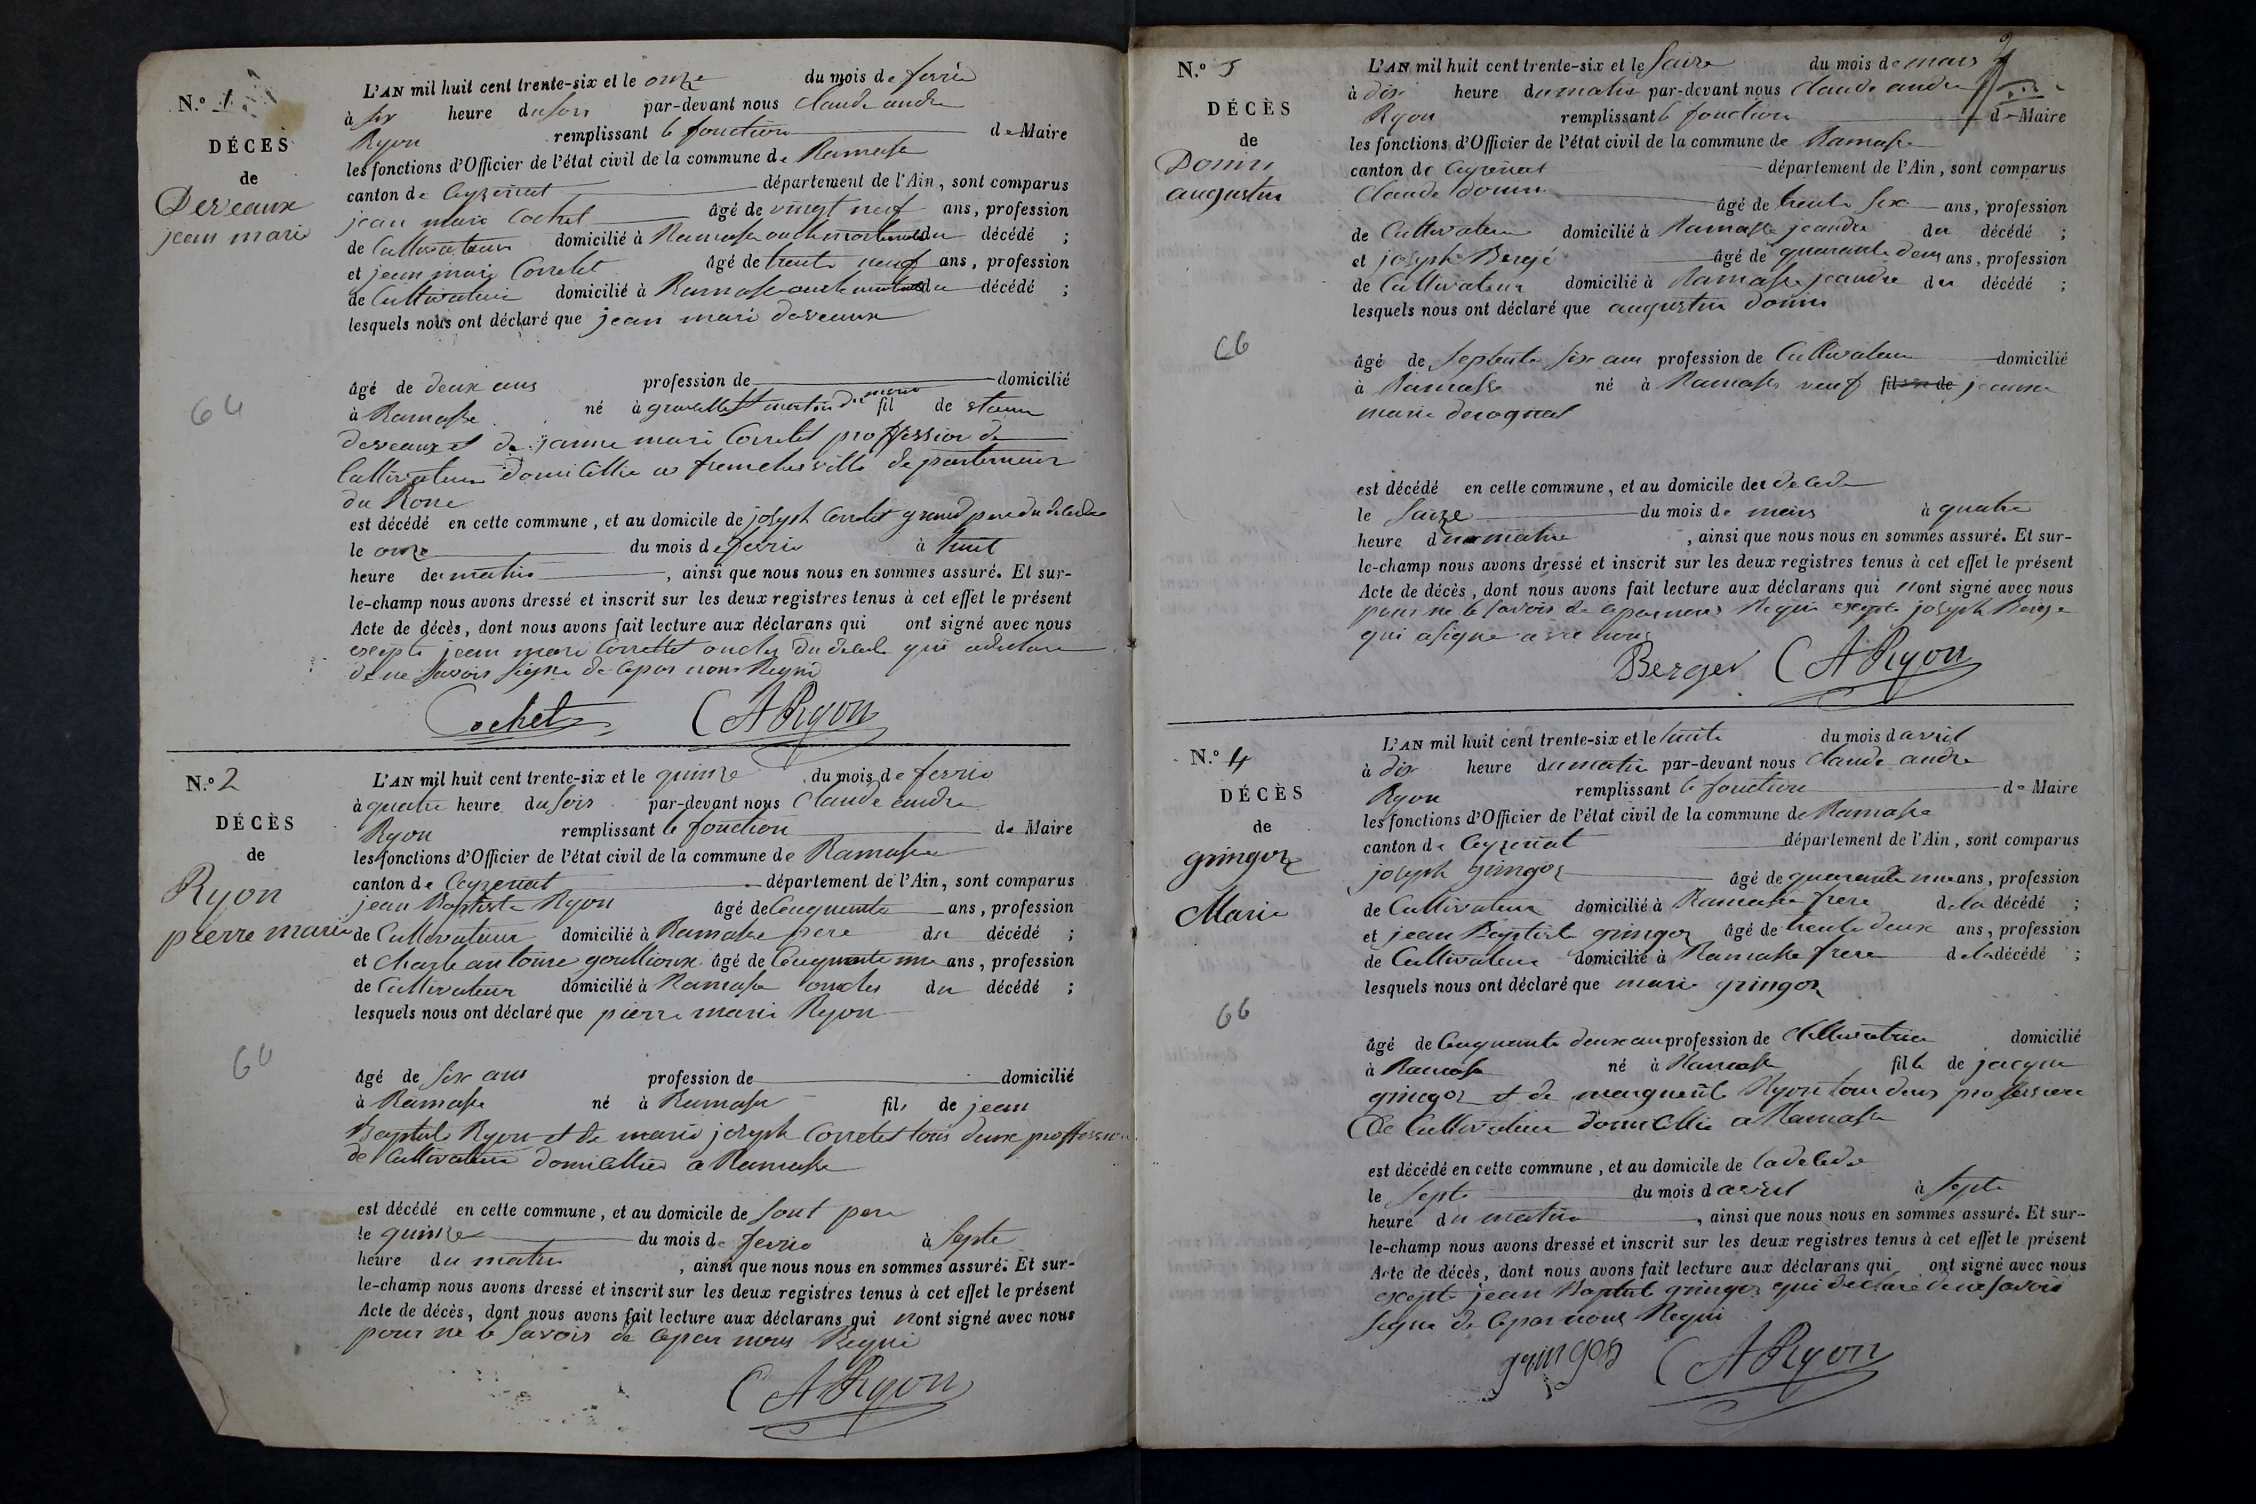 N.º 1
DÉCÈS
de
Deveaux
jean marie
64
L'AN mil huit cent trente-six et le onze du mois de fevrié
à six heure du soir par-devant nous claude andre
Ryon remplissant le fonction de Maire
les fonctions d'Officier de l'état civil de la commune de Ramasse
canton de Ceyzeriat département de l'Ain, sont comparus
jean marie Cochet âgé de vingt neuf ans, profession
de Cultivateur domicilié à Ramasse oncle du décédé ;
et jean marie Corretet âgé de trente neuf ans, profession
de Cultivateur domicilié à Ramasse oncle du décédé ;
lesquels nous ont déclaré que jean marie deveaux
âgé de deux ans profession de domicilié
à Ramasse né à fil de
deveaux et de jeanne marie Corretet proffession de
Cultivateur domicillié a francheville departement
du Rone
est décédé en cette commune, et au domicile de joseph Corretet grand pere du decede
le onze du mois de fevrié à huit
heure du matin , ainsi que nous nous en sommes assuré. Et sur-
le-champ nous avons dressé et inscrit sur les deux registres tenus à cet effet le présent
Acte de décès, dont nous avons fait lecture aux déclarans qui ont signé avec nous
excepte jean marie Corretet oncles du decede qui a declare
de ne savoir signe de cepar nous Requi
Cochet CARyon
N.º 2
DÉCÈS
de
Ryon
pierre marie
60
L'AN mil huit cent trente-six et le quinze du mois de fevrié
à quatre heure du soir par-devant nous Claude andre
Ryon remplissant le fonction de Maire
les fonctions d'Officier de l'état civil de la commune de Ramasse
canton de Ceyzeriat département de l'Ain, sont comparus
jean Baptiste Ryon âgé de Cenquente ans, profession
de Cultivateur domicilié à Ramasse pere du décédé ;
et Charle antoine goullioux âgé de Cenquente une ans, profession
de Cultivateur domicilié à Ramasse oncles du décédé ;
lesquels nous ont déclaré que pierre marie Ryon
âgé de six ans profession de domicilié
à Ramasse né à Ramasse fils de jean
Baptiste Ryon et de marie joseph Corretet tous deux proffession
de Cultivateur domicillier a Ramasse
est décédé en cette commune, et au domicile de sont pere
le quinze du mois de fevrié à septe
heure du matin , ainsi que nous nous en sommes assuré. Et sur-
le-champ nous avons dressé et inscrit sur les deux registres tenus à cet effet le présent
Acte de décès, dont nous avons fait lecture aux déclarans qui nont signé avec nous
pour ne le savoir de cepar nous Requi
CARyon
N.º 3
DÉCÈS
de
Donin
augustin
66
L'AN mil huit cent trente-six et le saize du mois de mars
à dix heure du matin par-devant nous Claude andre
Ryon remplissant le fonction de Maire
les fonctions d'Officier de l'état civil de la commune de Ramasse
canton de Ceyzeriat département de l'Ain, sont comparus
Claude donin âgé de trente six ans, profession
de Cultivateur domicilié à Ramasse jeandre du décédé ;
et joseph Bergé âgé de quarante deux ans, profession
de Cultivateur domicilié à Ramasse jeandre du décédé ;
lesquels nous ont déclaré que augustin donin
âgé de septente six ans profession de Cultivateur domicilié
à Ramasse né à Ramasse veuf fils de jeanne
marie
est décédé en cette commune, et au domicile du decede
le saize du mois de mars à quatre
heure du matin , ainsi que nous nous en sommes assuré. Et sur-
le-champ nous avons dressé et inscrit sur les deux registres tenus à cet effet le présent
Acte de décès, dont nous avons fait lecture aux déclarans qui nont signé avec nous
pour ne le savoir de cepar nous Requi excepte joseph Berge
qui a signe avec nous
Berger CARyon
N.º 4
DÉCÈS
de
gringoz
Marie
66
L'AN mil huit cent trente-six et le huite du mois d avril
à dix heure du matin par-devant nous Claude andre
Ryon remplissant le fonction de Maire
les fonctions d'Officier de l'état civil de la commune de Ramasse
canton de Ceyzeriat département de l'Ain, sont comparus
joseph gringoz âgé de quarante une ans, profession
de Cultivateur domicilié à Ramasse frere de la décédé ;
et jean Baptiste gringoz âgé de trente deux ans, profession
de Cultivateur domicilié à Ramasse frere de la décédé ;
lesquels nous ont déclaré que marie gringoz
âgé de Cenquante deux an profession de Cultivatrice domicilié
à Ramasse né à Ramasse fille de jacque
gringoz et de marguerite Ryon tous deux proffession
de Cultivateur domicillié a Ramasse
est décédé en cette commune, et au domicile de la decede
le septe du mois d avril à septe
heure du matin , ainsi que nous nous en sommes assuré. Et sur-
le-champ nous avons dressé et inscrit sur les deux registres tenus à cet effet le présent
Acte de décès, dont nous avons fait lecture aux déclarans qui ont signé avec nous
excepte jean Baptiste gringoz qui declare de ne savoir
signe de cepar nous Requi
gringoz CARyon